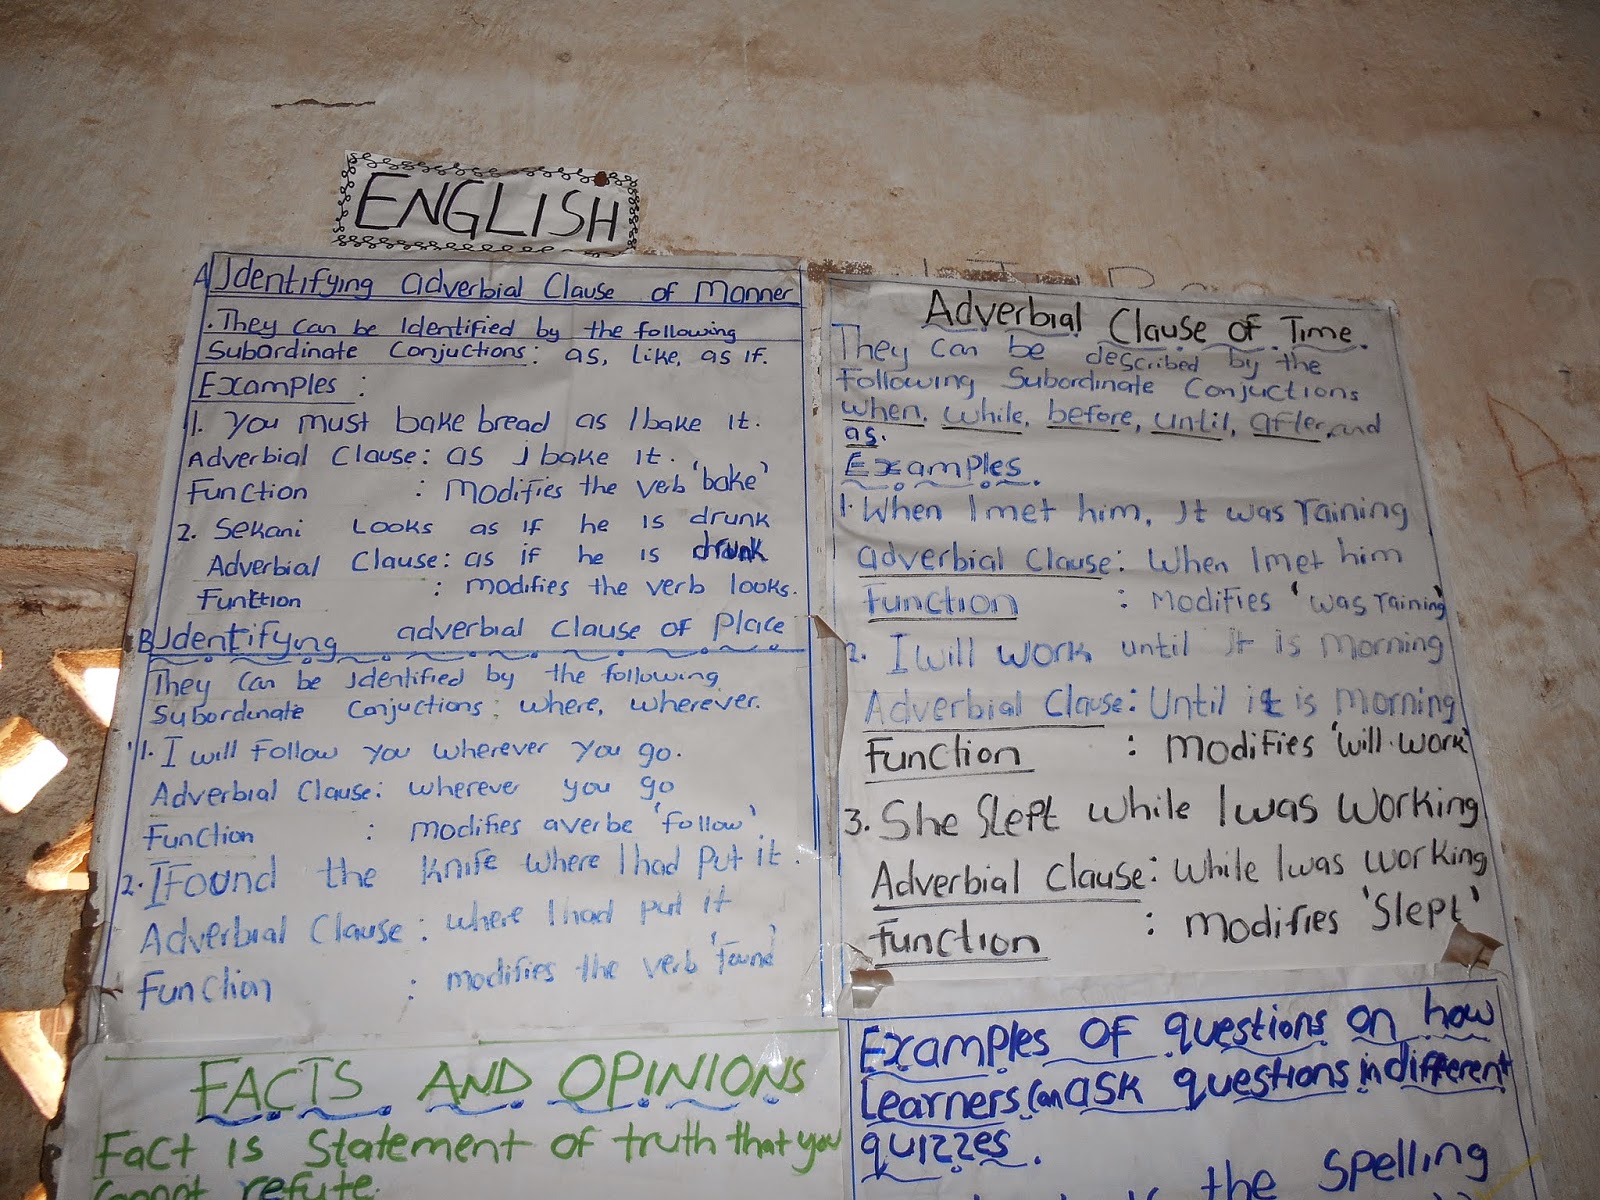 ENGLISH
A Identifying adverbial Clause of Manner
. They can be Identified by the following
Subordinate Conjuctions: as, like, as if.
Examples:
1. You must bake bread as I bake it.
Adverbial Clause: as I bake it.
Function : Modifies the verb 'bake'
2. Sekani Looks as if he is drunk
Adverbial Clause: as if he is drunk
Funttion : modifies the verb looks.
B Identifying adverbial Clause of Place
They can be Identified by the following
Subordinate Conjuctions: where, wherever.
1. I will Follow you wherever you go.
Adverbial Clause: wherever you go
Function : modifies averbe 'follow'.
2. I Found the knife where I had put it.
Adverbial Clause: where I had put it
Function : modifies the verb 'found'
FACTS AND OPINIONS
Fact is Statement of truth that you
cannot refute.
Adverbial Clause of Time.
They can be described by the
Following Subordinate Conjuctions
when, while, before, until, after, and
as.
Examples.
1. When I met him, It was raining
adverbial Clause: When I met him
Function : Modifies 'was raining'
2. I will work until It is morning
Adverbial Clause: Until it is morning
Function : Modifies 'will work'
3. She Slept while I was working
Adverbial Clause: While I was working
Function : Modifies 'Slept'
Examples of questions on how
Learners can ask questions in different
quizzes.
the spelling